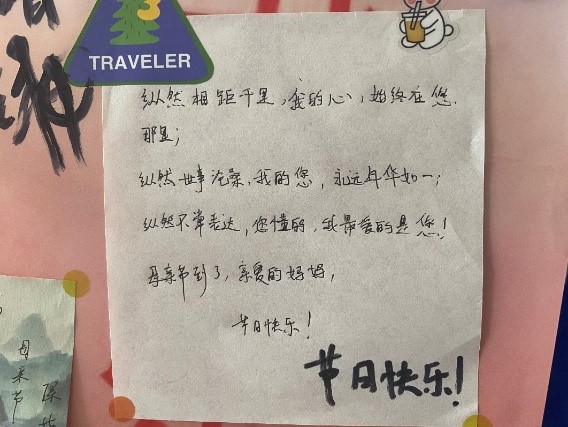 3
TRAVELER
纵然相距千里,我的心,始终在您
那里;
纵然世事沧桑,我的您,永远年华如一;
纵然不常表达,您懂的,我最爱的是您!
母亲节到了,亲爱的妈妈,
节日快乐!
节日快乐!
母亲节